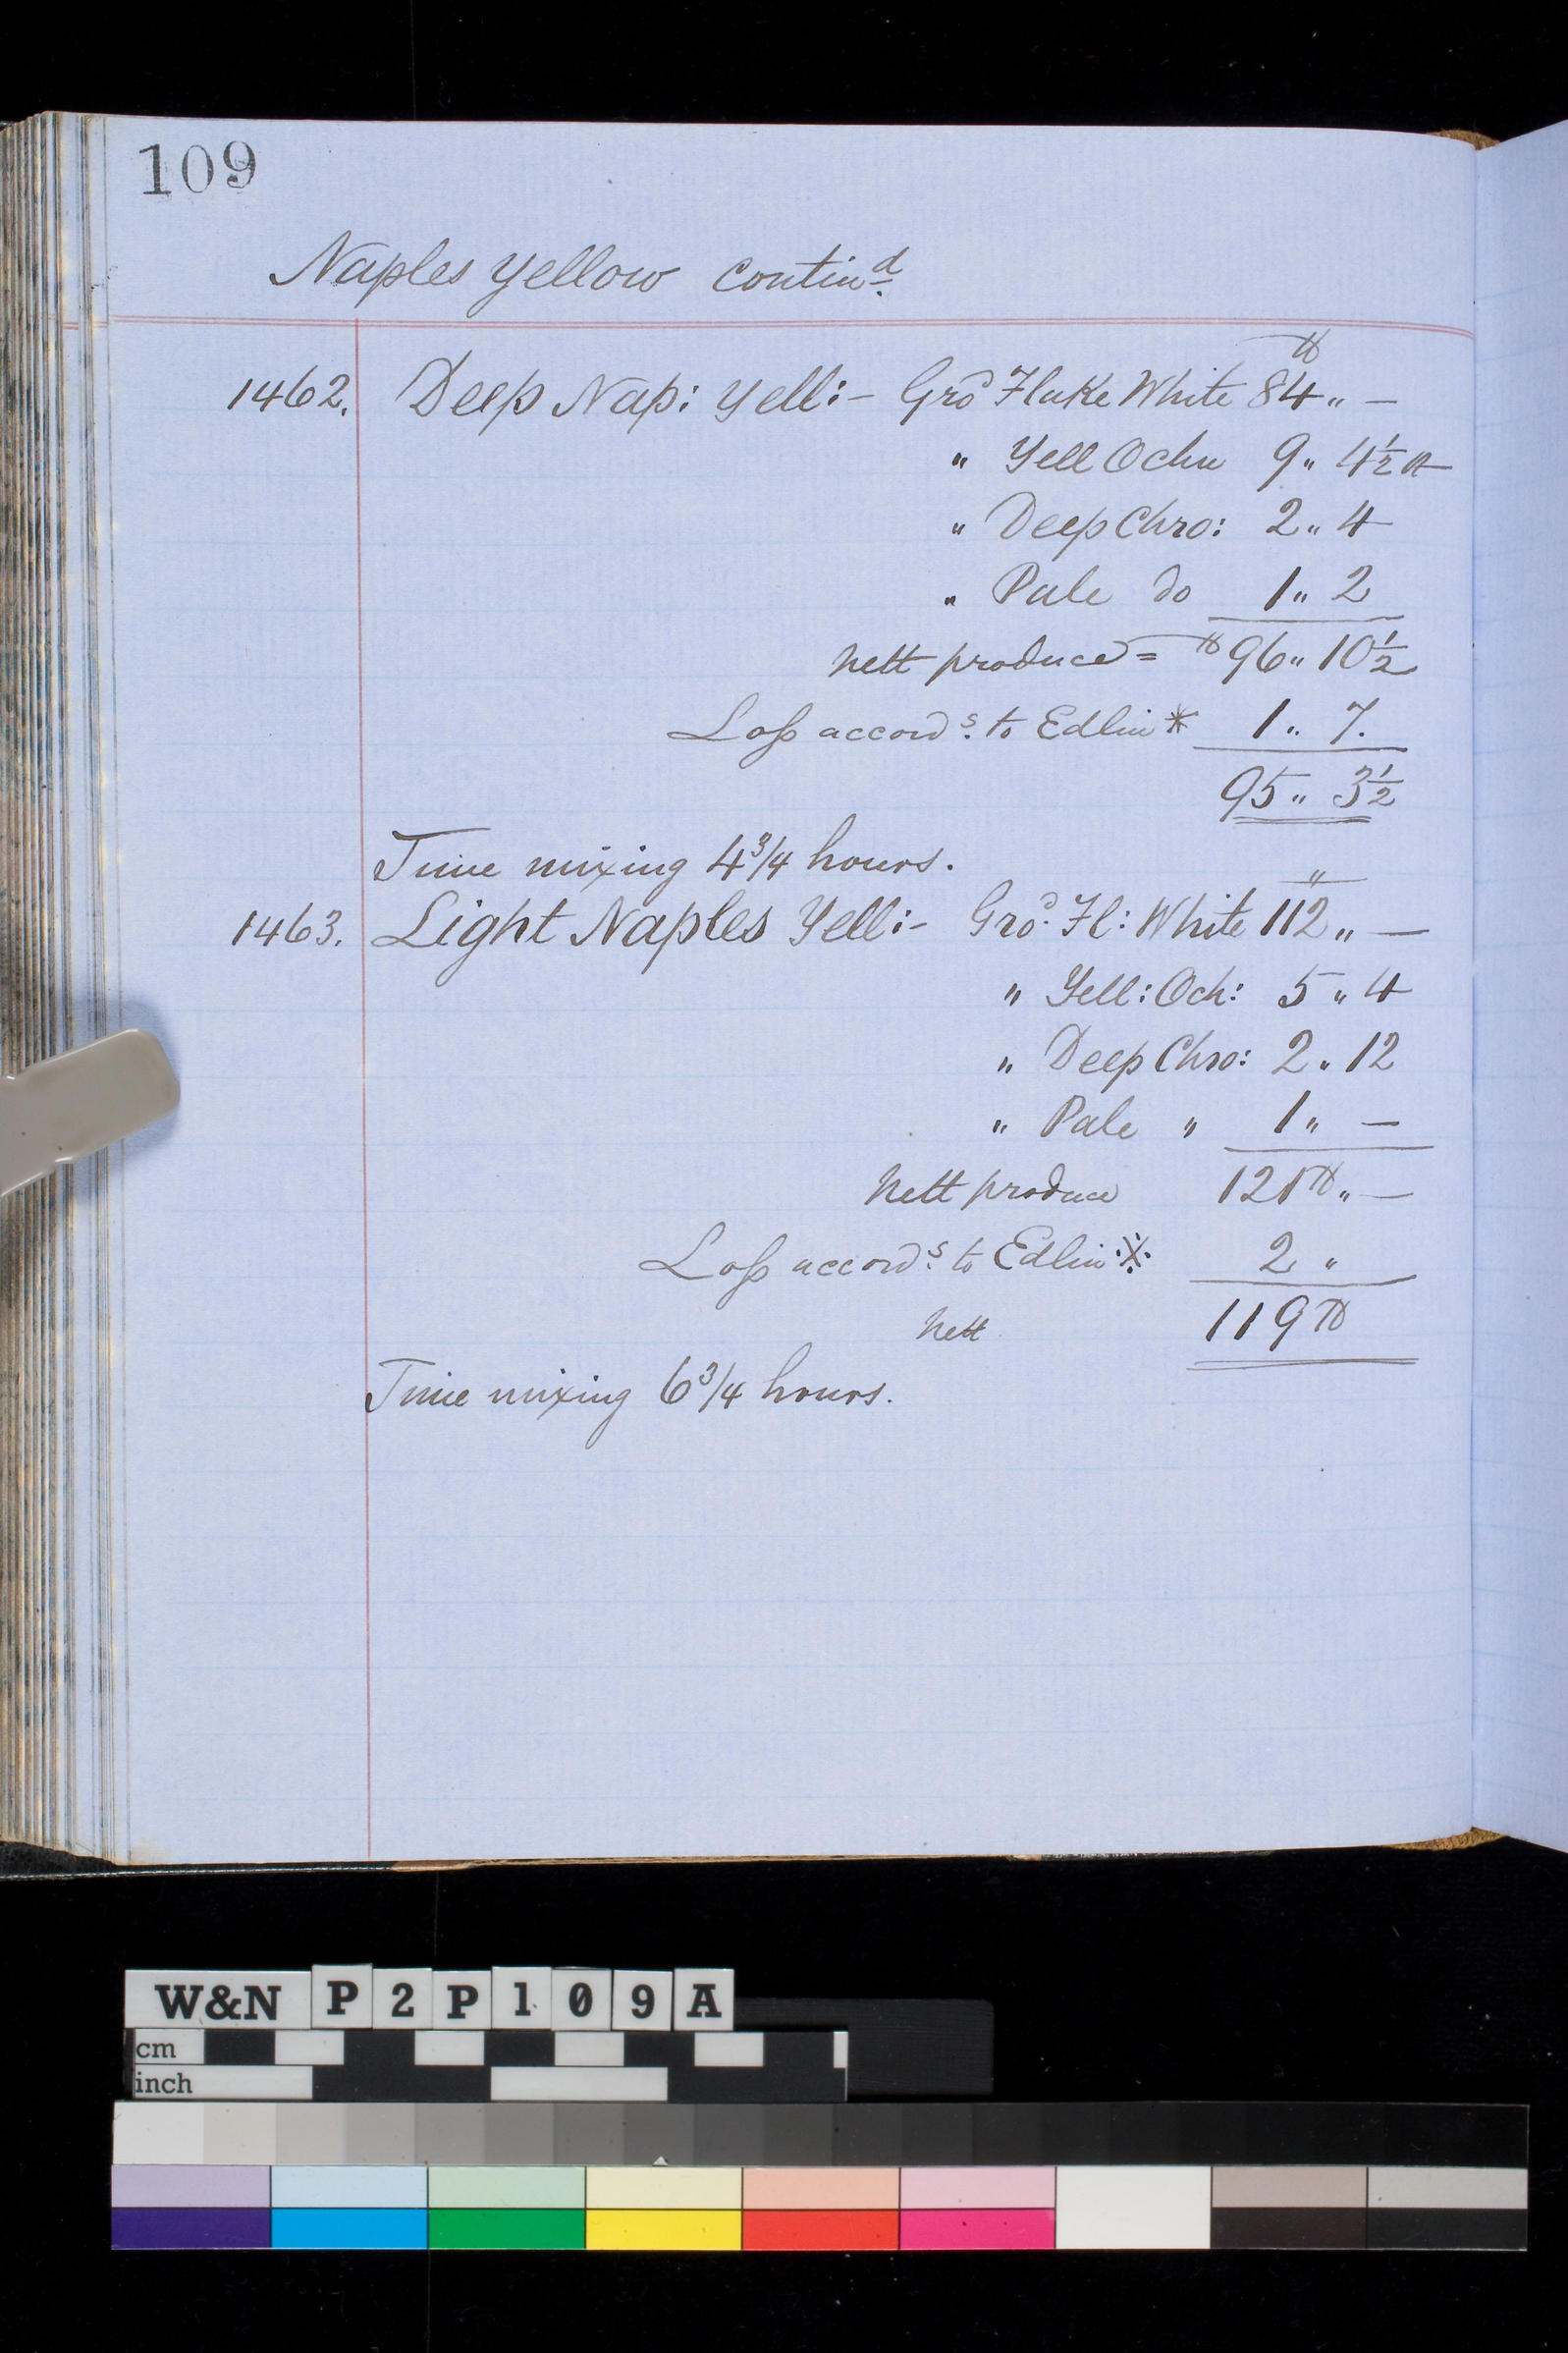 109
Naples Yellow contin^d.
1462. Deep Nap: Yell:- Gro^d Flake White 84 lb " —
" Yell Ochre 9 " 4½
" Deep Chro: 2 " 4
" Pale do 1 " 2
Nett produce = lb 96 " 10½
Loss accord^s. to Edlin * 1 " 7.
95 " 3½
Time mixing 4¾ hours.
1463. Light Naples Yell:- Gro^d. Fl: White 112 " —
" Yell: Och: 5 " 4
" Deep Chro: 2 " 12
" Pale " 1 " —
Nett produce 121 lb " —
Loss accord^s. to Edlin ※ 2 "
Nett 119 lb
Time mixing 6¾ hours.
W&N P2P109A
cm
inch